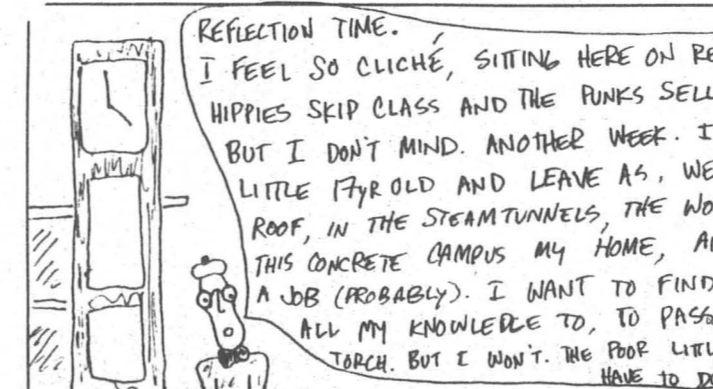 REFLECTION TIME.
I FEEL SO CLICHÉ, SITTING HERE ON RE
HIPPIES SKIP CLASS AND THE PUNKS SELL
BUT I DON'T MIND. ANOTHER WEEK. I
LITTLE 17yR OLD AND LEAVE AS, WE
ROOF, IN THE STEAMTUNNELS, THE WO
THIS CONCRETE CAMPUS MY HOME, A
A JOB (PROBABLY). I WANT TO FIND
ALL MY KNOWLEDLE TO, TO PASS
TORCH. BUT I WON'T. THE POOR LITTL
HAVE TO D